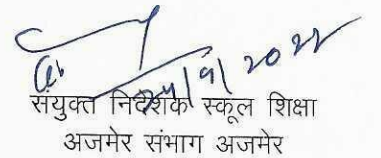 24/9/2022
संयुक्त निदेशक स्कूल शिक्षा
अजमेर संभाग अजमेर